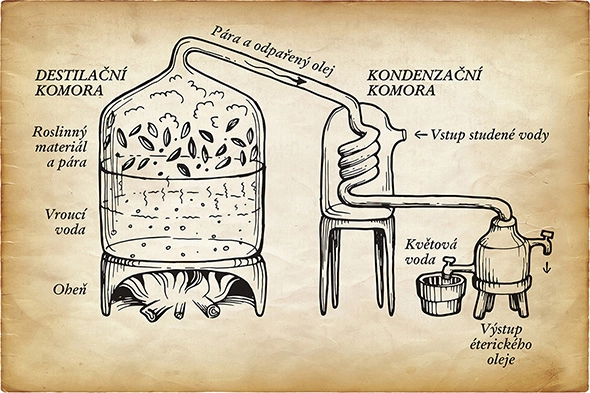 Pára a odpařený olej
DESTILAČNÍ
KOMORA
Roslinný
materiál
a pára
Vroucí
voda
Oheň
KONDENZAČNÍ
KOMORA
←Vstup studené vody
Květová
voda
Výstup
éterického
oleje